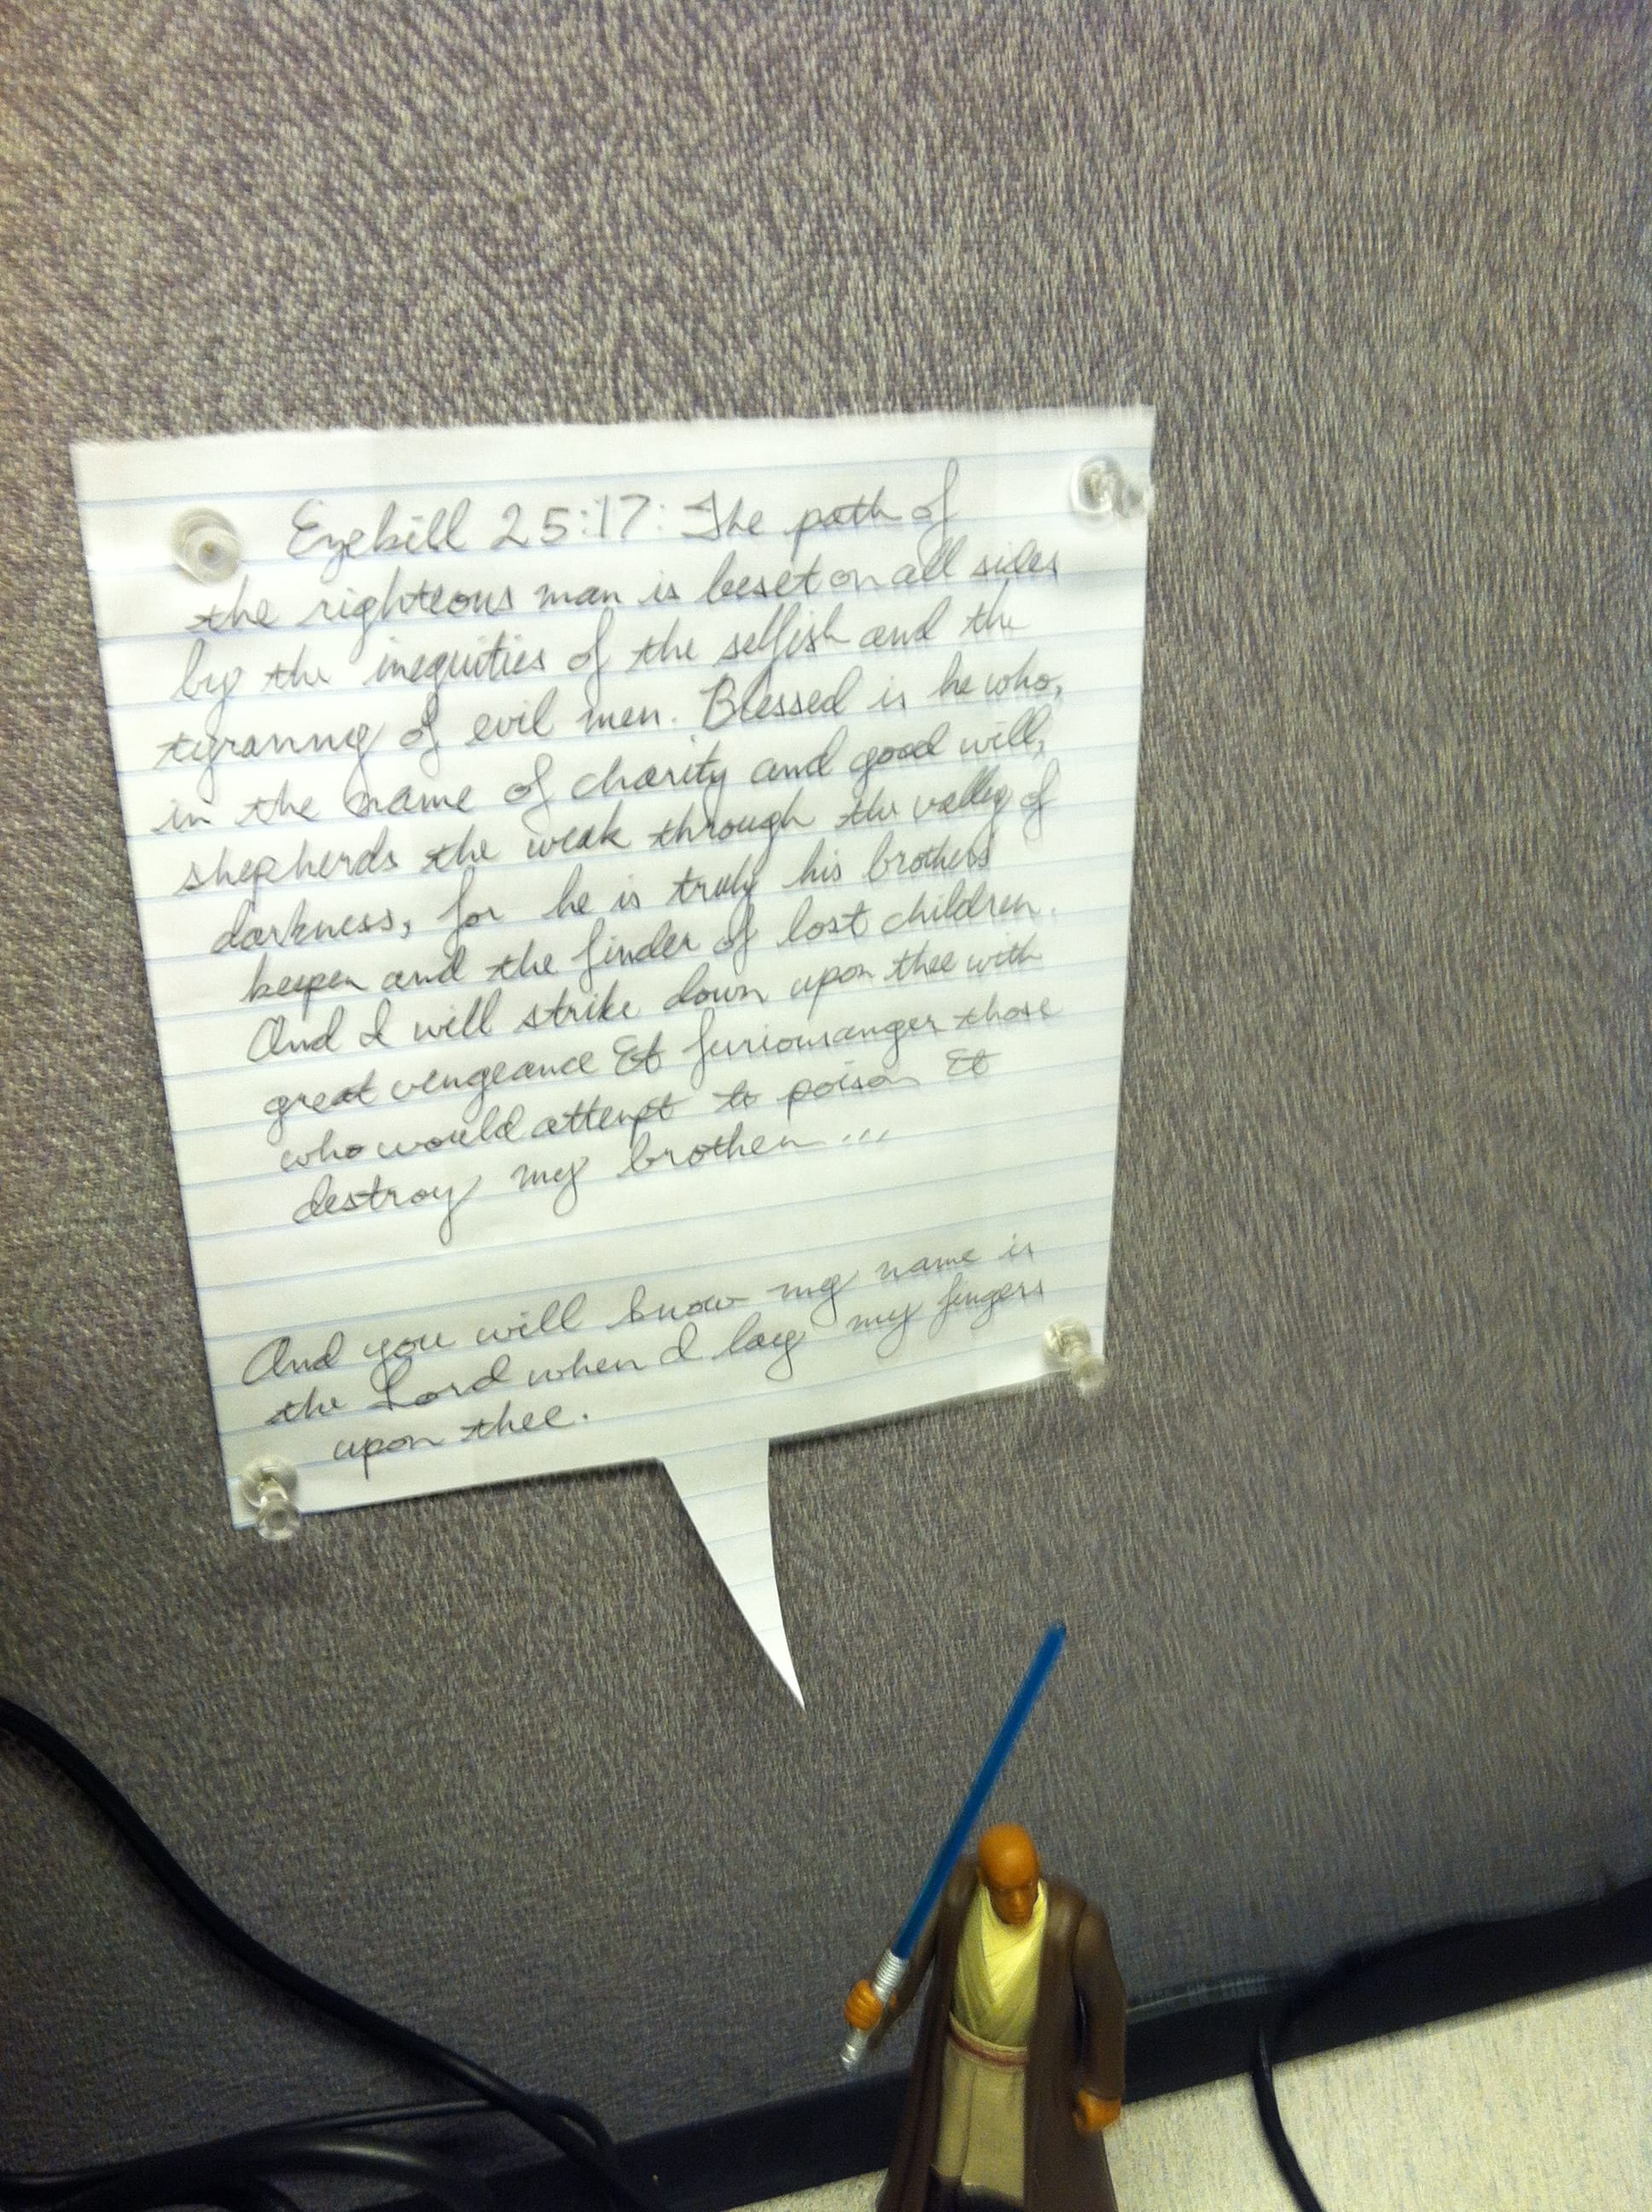 Ezekill 25:17: The path of
the righteous man is beset on all sides
by the inequities of the selfish and the
tyranny of evil men. Blessed is he who,
in the name of charity and good will,
shepherds the weak through the valley of
darkness, for he is truly his brothers
keeper and the finder of lost children.
And I will strike down upon thee with
great vengeance & furious anger those
who would attempt to poison &
destroy my brothers...
And you will know my name is
the Lord when I lay my fingers
upon thee.